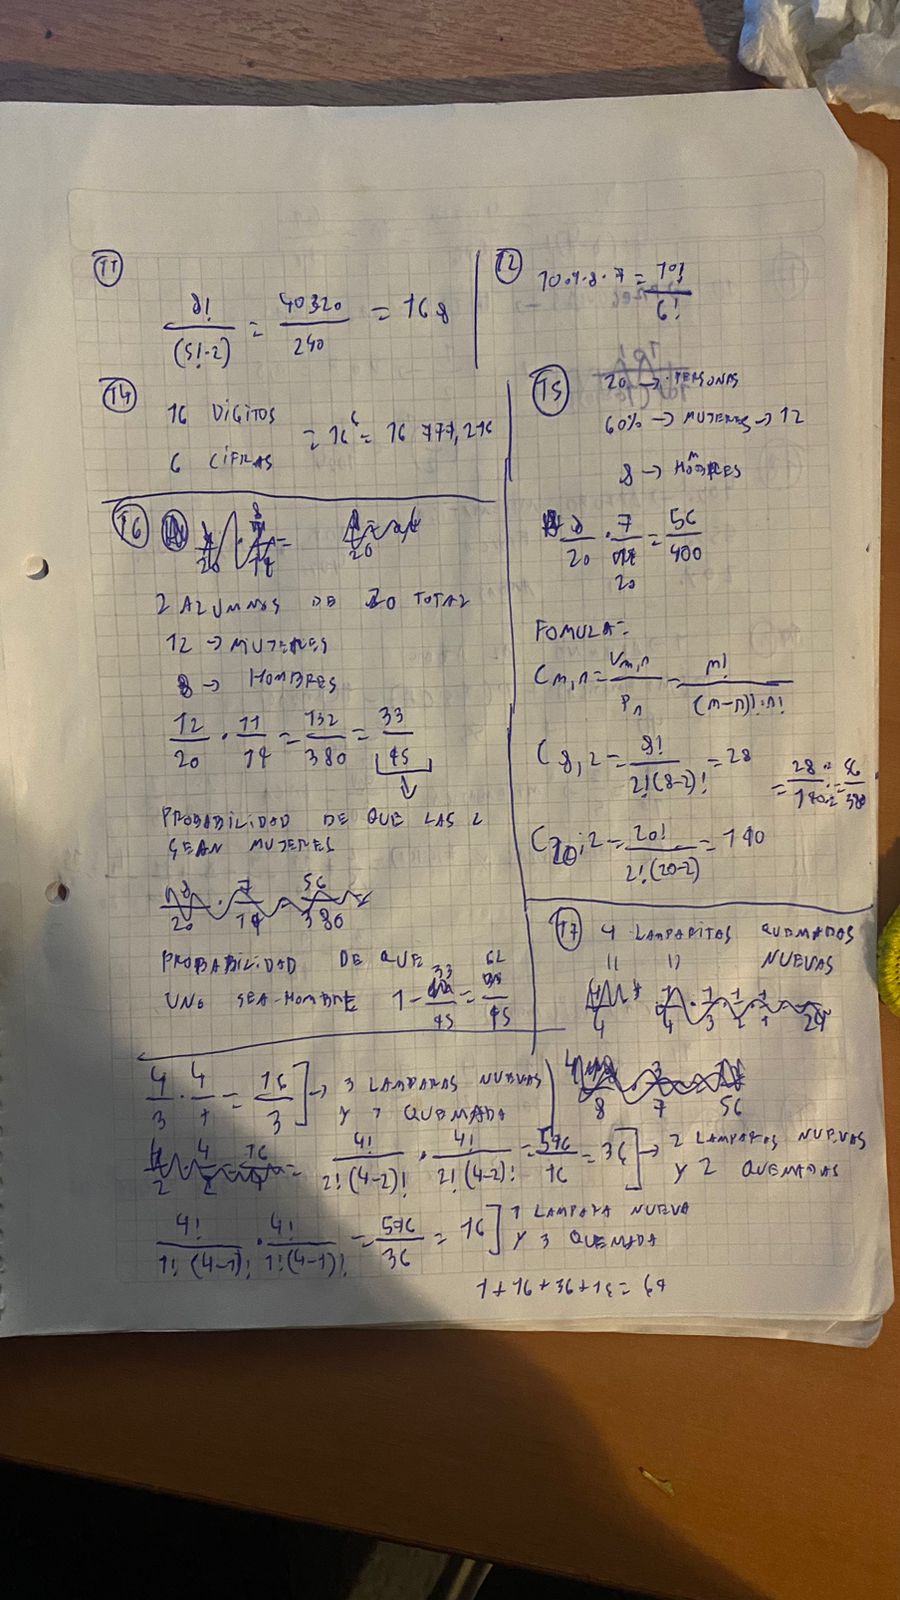 11
8! / (5!·2) = 40320 / 240 = 168
12
10·9·8·7 = 10! / 6!
14
16 DIGITOS
6 CIFRAS
= 16^6 = 16 777,216
15
20 → PERSONAS
60% → MUJERES → 12
8 → HOMBRES
8/20 · 7/20 = 56/400
FOMULA =
Cm,n = Vm,n / Pn = m! / (m-n)!·n!
C8,2 = 8! / 2!(8-2)! = 28
= 28·2 / 190·2 = 56/380
C20;2 = 20! / 2!(20-2) = 190
16
2 ALUMNOS DE 20 TOTAL
12 → MUJERES
8 → HOMBRES
12/20 · 11/19 = 132/380 = 33/95
PROBABILIDAD DE QUE LAS 2
SEAN MUJERES
PROBABILIDAD DE QUE
UNO SEA HOMBRE 1 - 33/95 = 62/95
17
4 LAMPARITAS QUEMADAS
" " NUEVAS
4/3 · 4/1 = 16/3 ] → 3 LAMPARAS NUEVAS
Y 1 QUEMADA
4! / 2!(4-2)! · 4! / 2!(4-2)! = 576/16 = 36 ] → 2 LAMPARAS NUEVAS
Y 2 QUEMADAS
4! / 1!(4-1)! · 4! / 1!(4-1)! = 576/36 = 16 ] 1 LAMPARA NUEVA
Y 3 QUEMADA